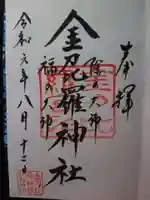 奉拝
除の大神
金毘羅神社
福の大神
令和元年八月十二日